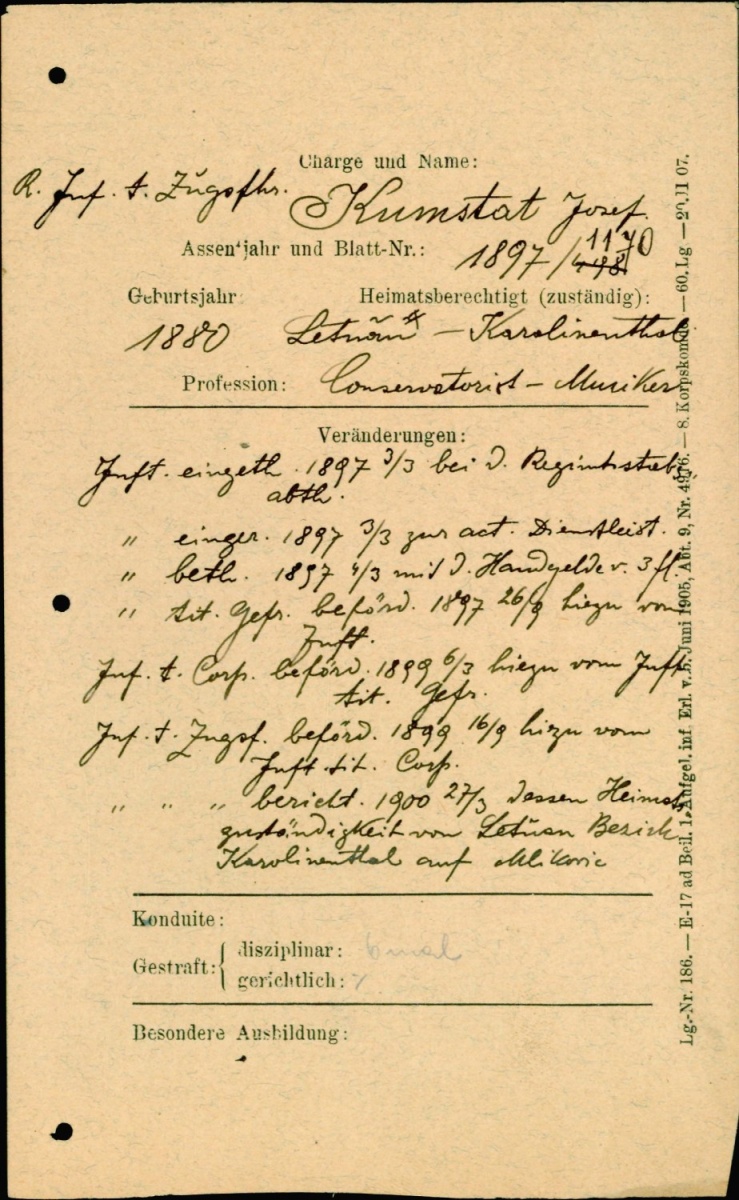 Charge und Name:
R. Inf. t. Zugsfhr.
Kumstat Josef.
Assentjahr und Blatt-Nr.:
1897/1170
Geburtsjahr: Heimatsberechtigt (zuständig):
1880 Letňan – Karolinenthal
Profession: Conservatorist – Musiker
Veränderungen:
Inft. eingeth. 1897 3/3 bei d. Regimtsstabs
abth.
" einger. 1897 3/3 zur act. Dienstleist.
" beth. 1897 4/3 mit d. Handgelde v. 3 fl.
" tit. Gefr. beförd. 1897 26/9 hiezu vom
Inft.
Inf. t. Corp. beförd. 1899 6/3 hiezu vom Inft
tit. Gefr.
Inf. t. Zugsf. beförd. 1899 16/9 hiezu vom
Inft. tit. Corp.
" " " bericht. 1900 27/3 dessen Heimats
zuständigkeit von Letňan Bezirk
Karolinenthal auf Mlikovic
Konduite:
Gestraft: disziplinar: 6 mal
gerichtlich:
Besondere Ausbildung:
Lg.-Nr. 186. — E-17 ad Beil. 1. Aufgel. inf. Erl. v. 5. Juni 1905, Abt. 9, Nr. 4976. — 8. Korpskom. — 60. Lg — 20. II 07.